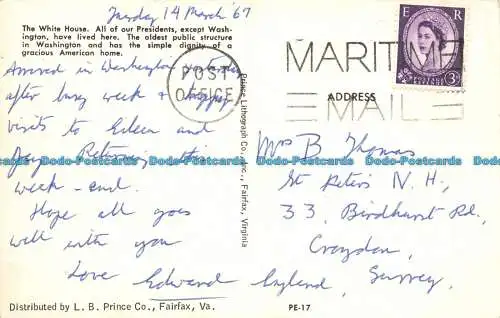 Tuesday 14 March '67
The White House. All of our Presidents, except Wash-
ington, have lived here. The oldest public structure
in Washington and has the simple dignity of a
gracious American home.
Arrived in Washington yesterday
after busy week & happy
visits to Eileen and
Joy. Returning this
week-end.
Hope all goes
well with you
Love Edward
Distributed by L. B. Prince Co., Fairfax, Va.
Prince Lithograph Co., Inc., Fairfax, Virginia
POST
OFFICE
MARITIME
MAIL
E R
POSTAGE
REVENUE
3D
ADDRESS
Mrs B Thomas
St Peter's N.H,
33, Birdhurst Rd,
Croydon,
England, Surrey.
PE-17
Dodo-Postcards Dodo-Postcards Dodo-Postcards Dodo-Postcards
Dodo-Postcards Dodo-Postcards Dodo-Postcards Dodo-Postcards